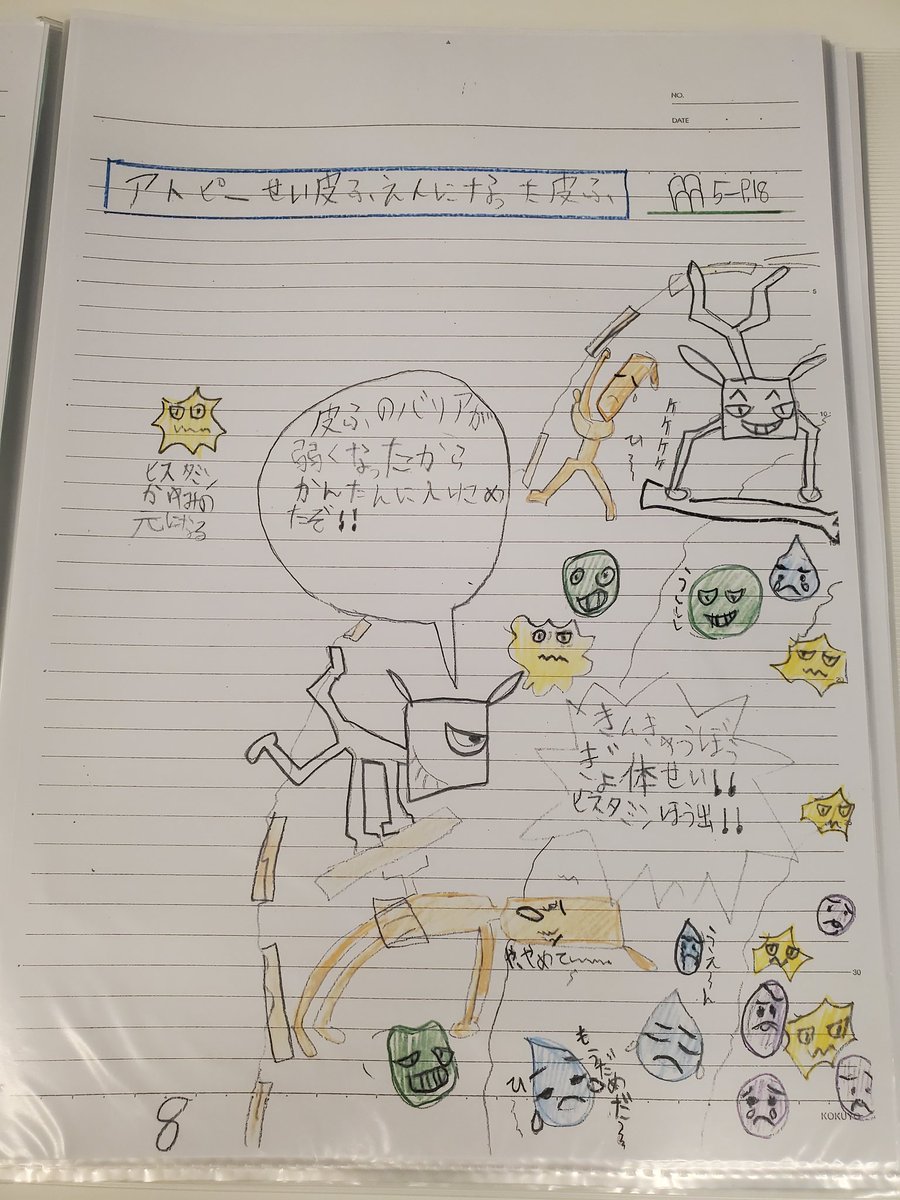 NO.
DATE
アトピーせい皮ふえんになった皮ふ
5-P.18
5
ケケケケ
ひ~~
10
皮ふのバリアが
弱くなったから
かんたんに入りこめ
たぞ!!
ヒスタミン
かゆみの
元になる
うししし
20
きんきゅうぼう
ぎょ体せい!!
ヒスタミンほう出!!
や、やめて~~
うえ~ん
30
もうだめだ~
ひ~~
8
KOKUYO